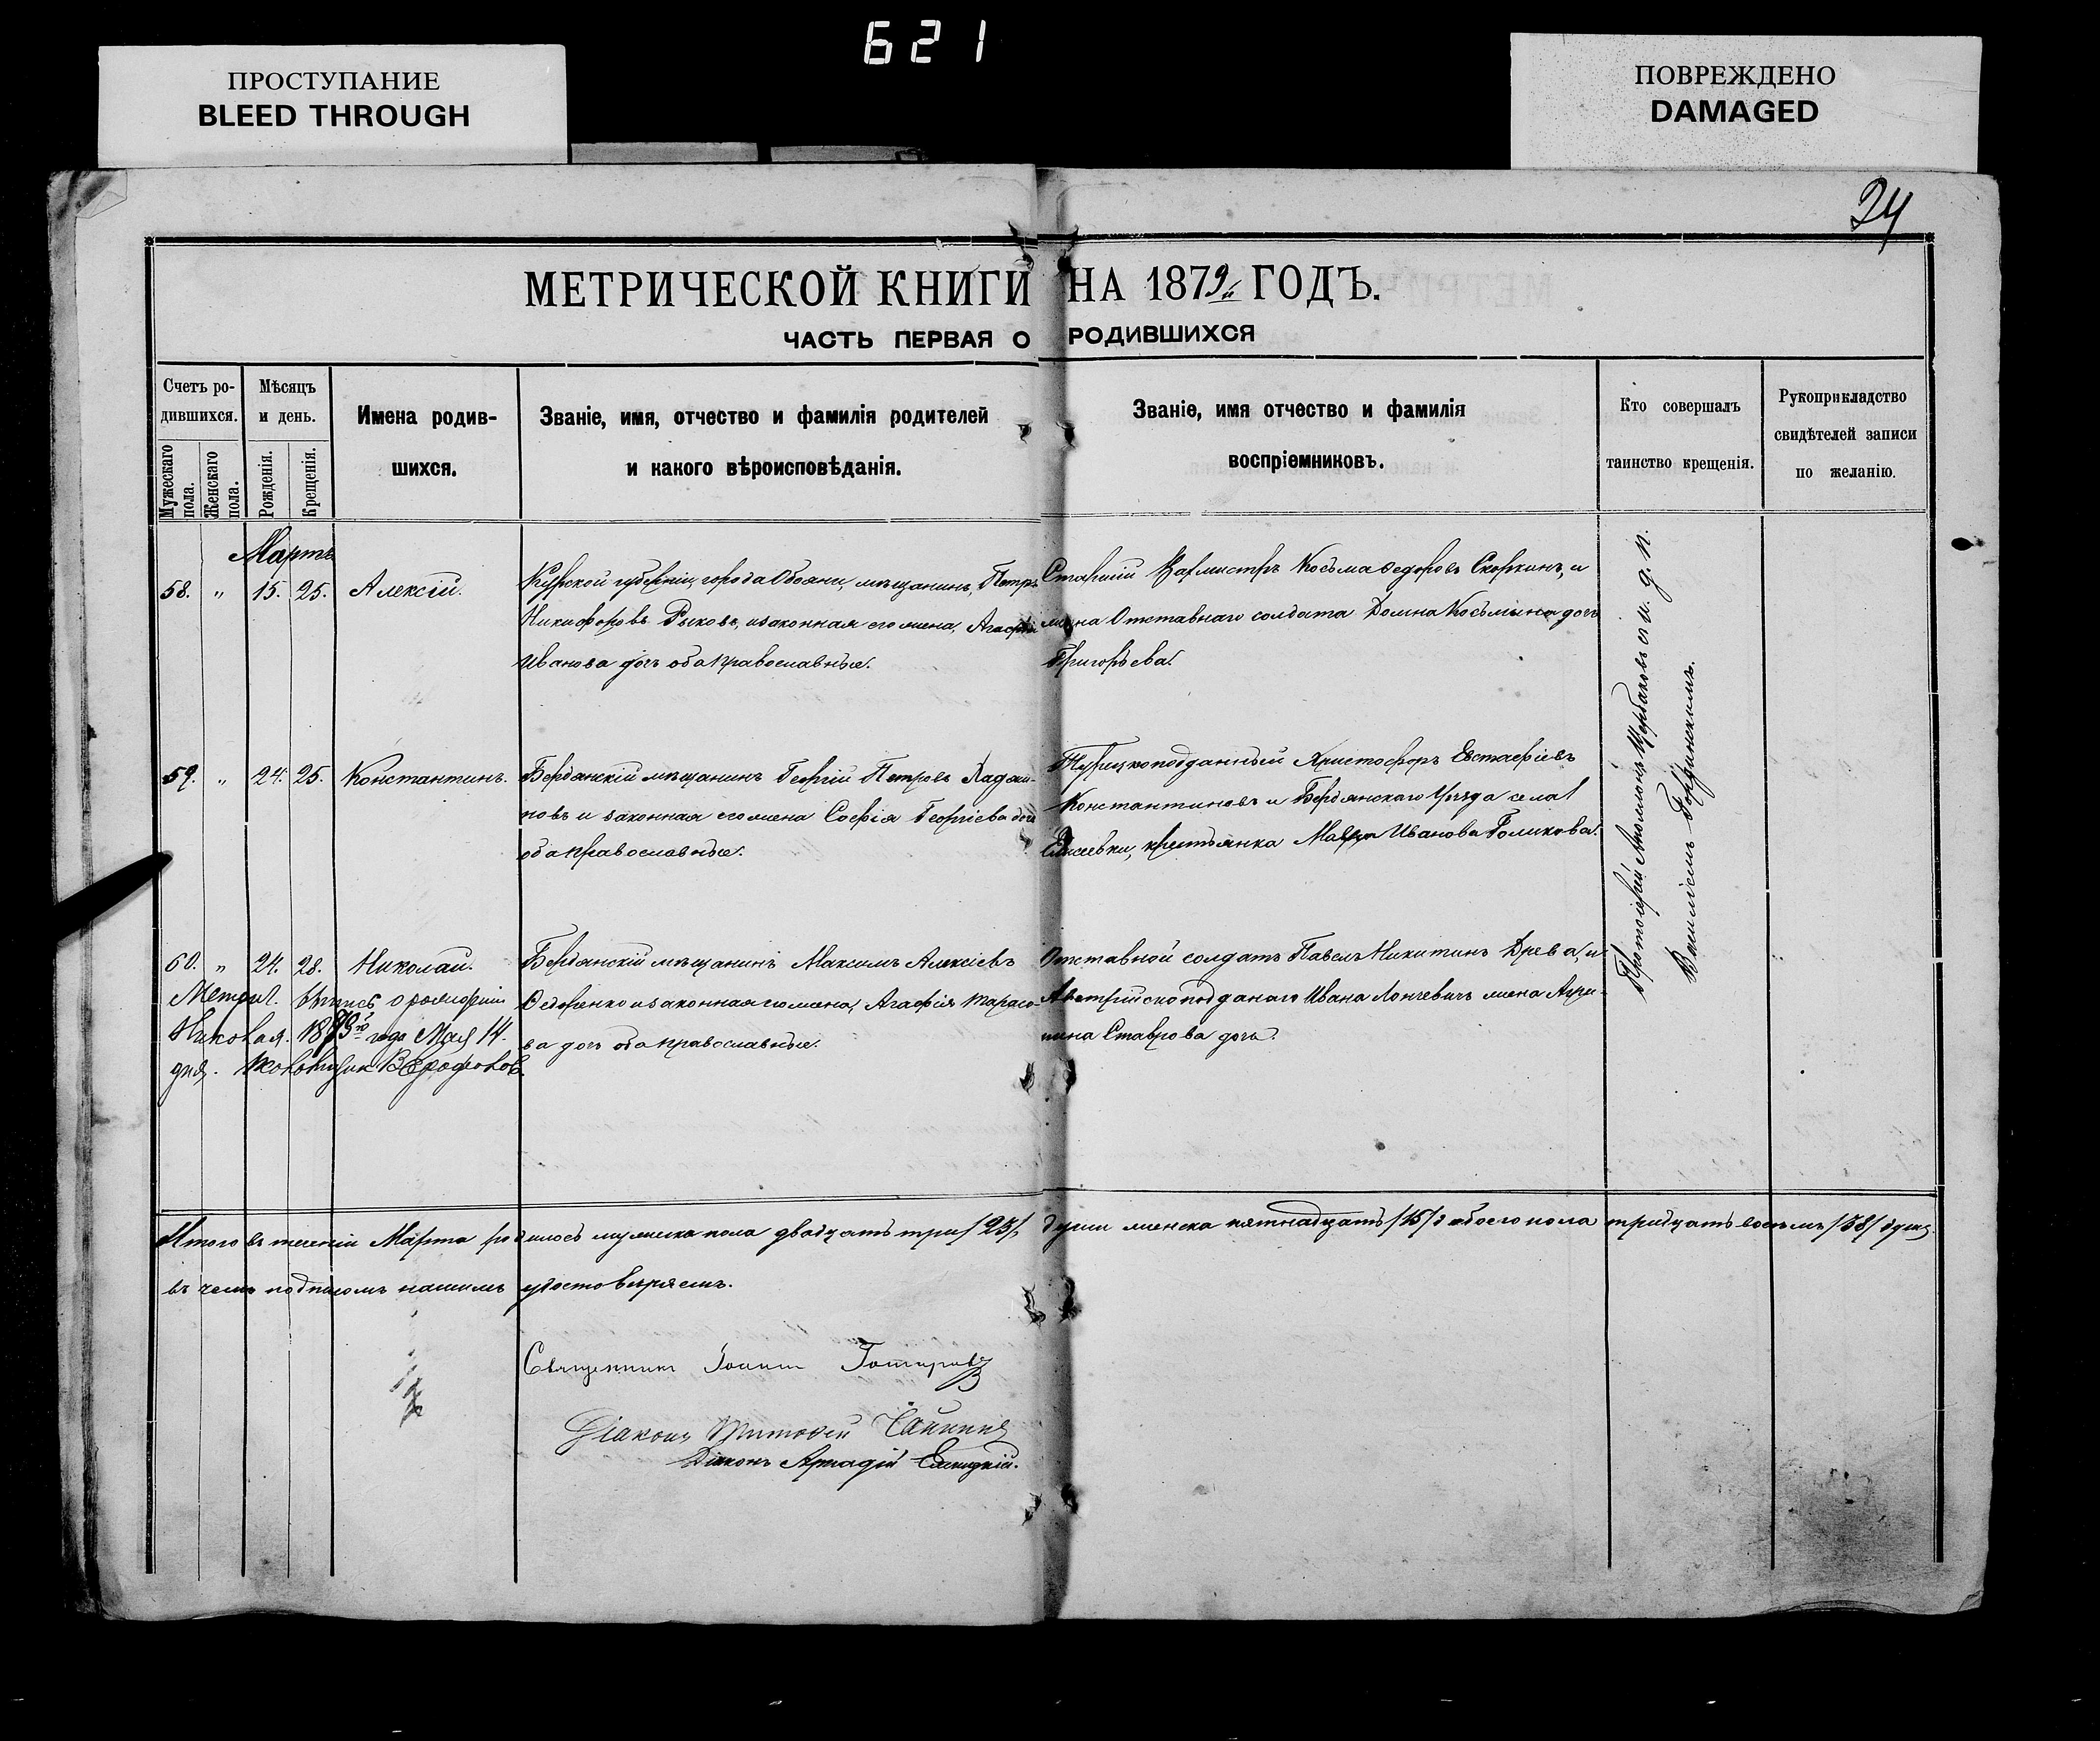 621
ПРОСТУПАНИЕ
BLEED THROUGH
ПОВРЕЖДЕНО
DAMAGED
24
МЕТРИЧЕСКОЙ КНИГИ НА 1879й ГОДЪ.
ЧАСТЬ ПЕРВАЯ О РОДИВШИХСЯ
Счетъ ро-
дившихся.
Мужескаго пола.
Женскаго пола.
Мѣсяцъ
и день.
Рожденія.
Крещенія.
Имена родив-
шихся.
Званіе, имя, отчество и фамилія родителей
и какого вѣроисповѣданія.
Званіе, имя отчество и фамилія
воспріемниковъ.
Кто совершалъ
таинство крещенія.
Рукоприкладство
свидѣтелей записи
по желанію.
Мартъ
58. " 15. 25. Алексій.
Курской губерніи, города Обояни, мѣщанинъ, Петръ
Никифоровъ Рыковъ, и законная его жена, Агафія
Иванова дочь оба православные.
Старшій Вахмистръ Косьма Ѳедоровъ Скоркинъ, и
жена Отставнаго солдата Домна Косьмина дочь
Григорьева.
59. " 24. 25. Константинъ.
Бердянскій мѣщанинъ Георгій Петровъ Хаджи-
новъ и законная его жена Софія Георгіева дочь
оба православные.
Турецкоподданный Христофоръ Евстафіевъ
Константиновъ и Бердянскаго Уѣзда села
крестьянка Иванова Голикова.
60. " 24. 28. Николай.
Бердянскій мѣщанинъ Максимъ Алексіевъ
Ѳедоренко и законная его жена, Агафія Тарасо-
ва дочь оба православные.
Отставной солдатъ Павелъ Никитинъ Древа, и
Австрійскоподданаго Ивана Лончевичъ жена Агри-
пина Ставрова дочь.
Метрич. выпись о рожденіи
Николая. года Мая 14.
дня.
Протоіерей Щербаковъ съ и. д. п.
Василіемъ
Итого въ теченіи Марта родилось мужеска пола двадцать три /23/, души женска пятнадцать /15/ а обоего пола тридцать восемь /38/ душъ.
въ чемъ подписомъ нашимъ удостовѣряемъ.
Священникъ Іоаннъ
Діаконъ Тимофей
Діаконъ Аркадій